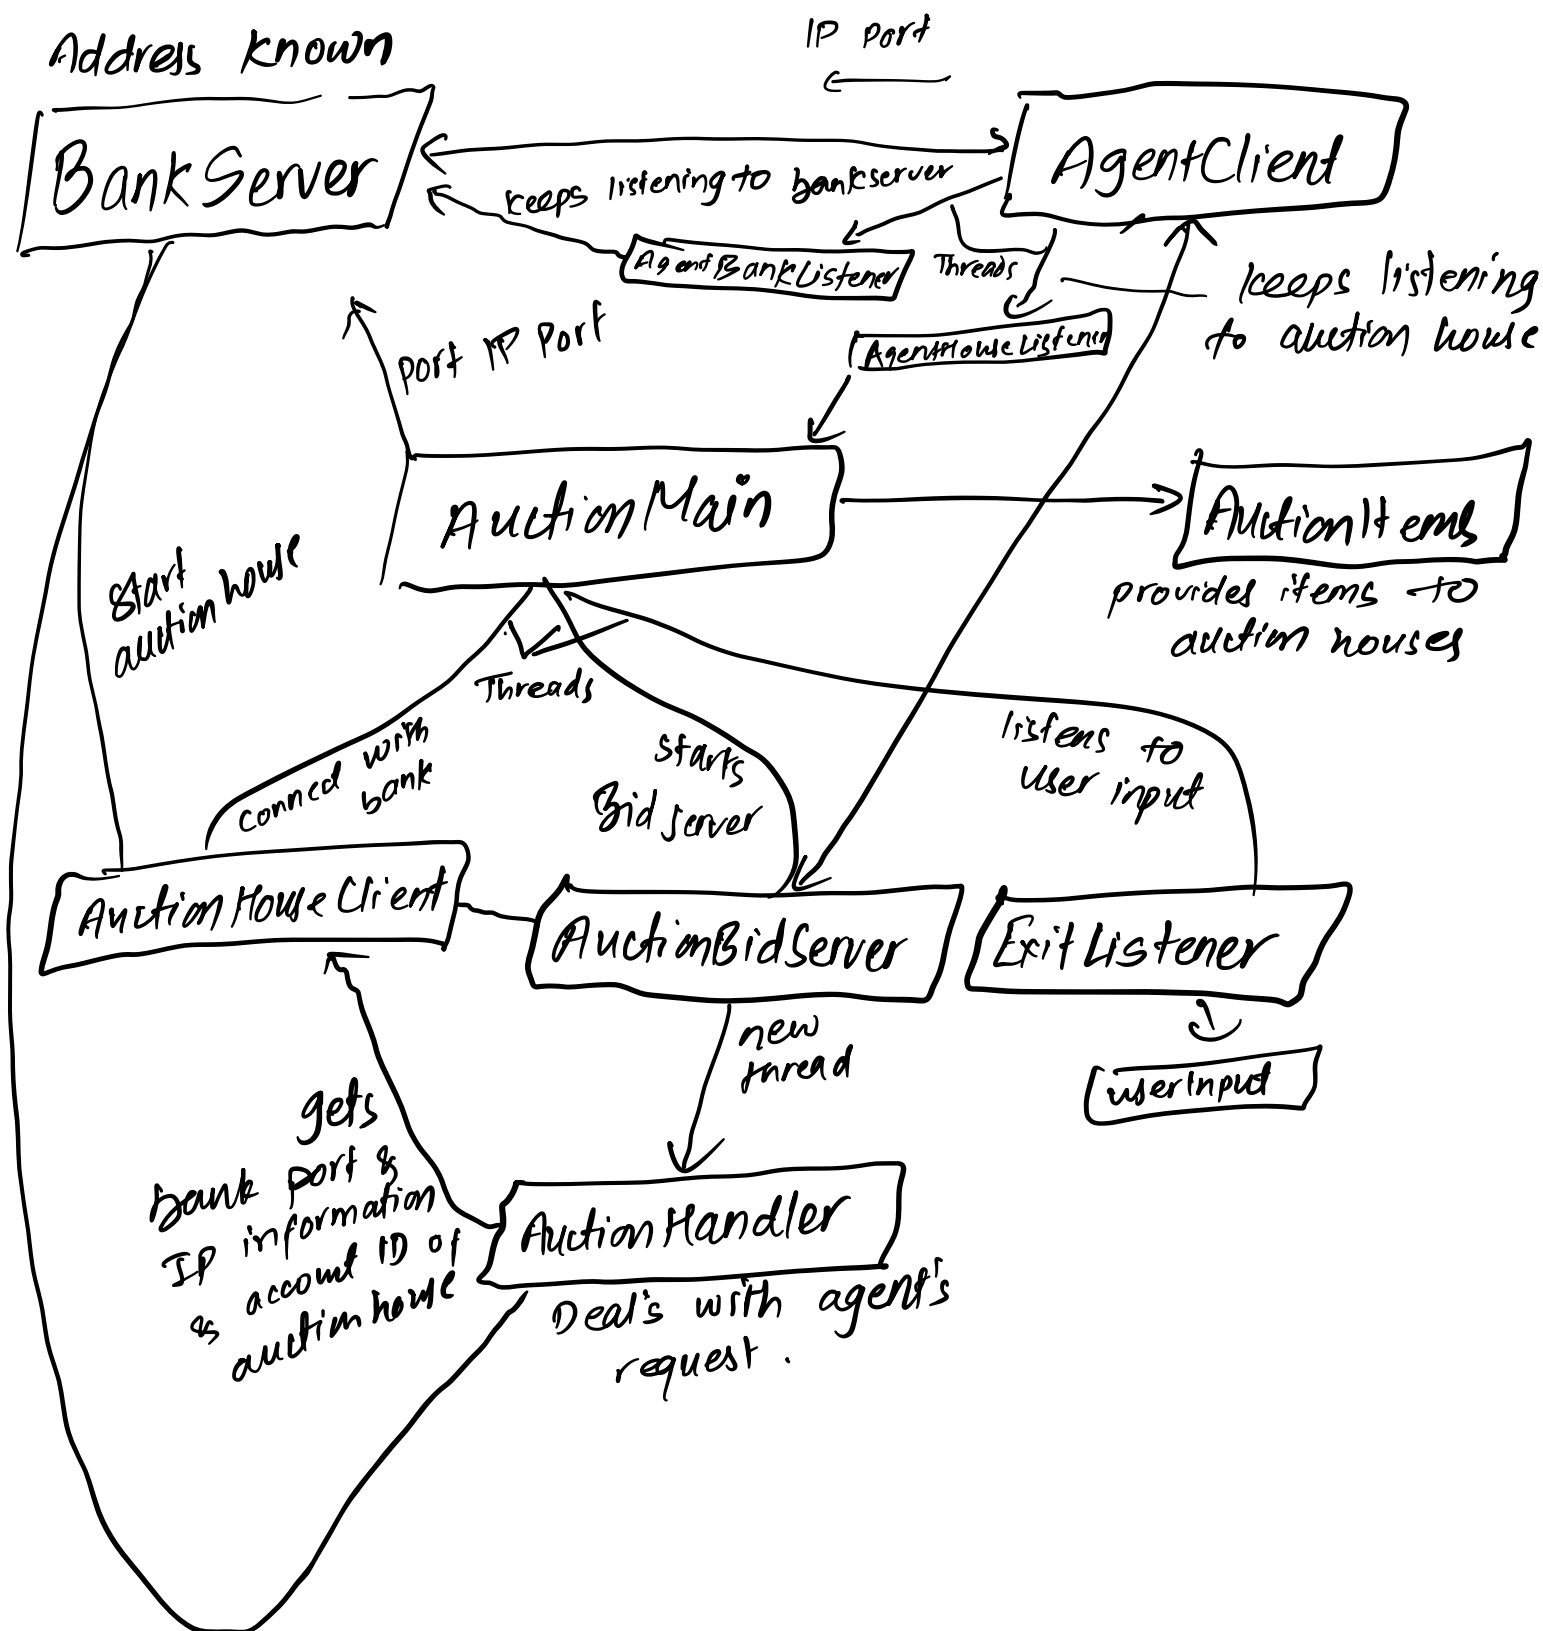 Address known
IP port
BankServer
AgentClient
keeps listening to bankserver
AgentBankListener
Threads
keeps listening
to auction house
AgentHouseListener
port IP port
AuctionMain
AuctionItems
provides items to
auction houses
start
auction house
Threads
connect with
bank
starts
Bid server
listens to
user input
AuctionHouseClient
AuctionBidServer
ExitListener
new
thread
userInput
gets
bank port &
IP information
& account ID of
auction house
AuctionHandler
Deal's with agent's
request.